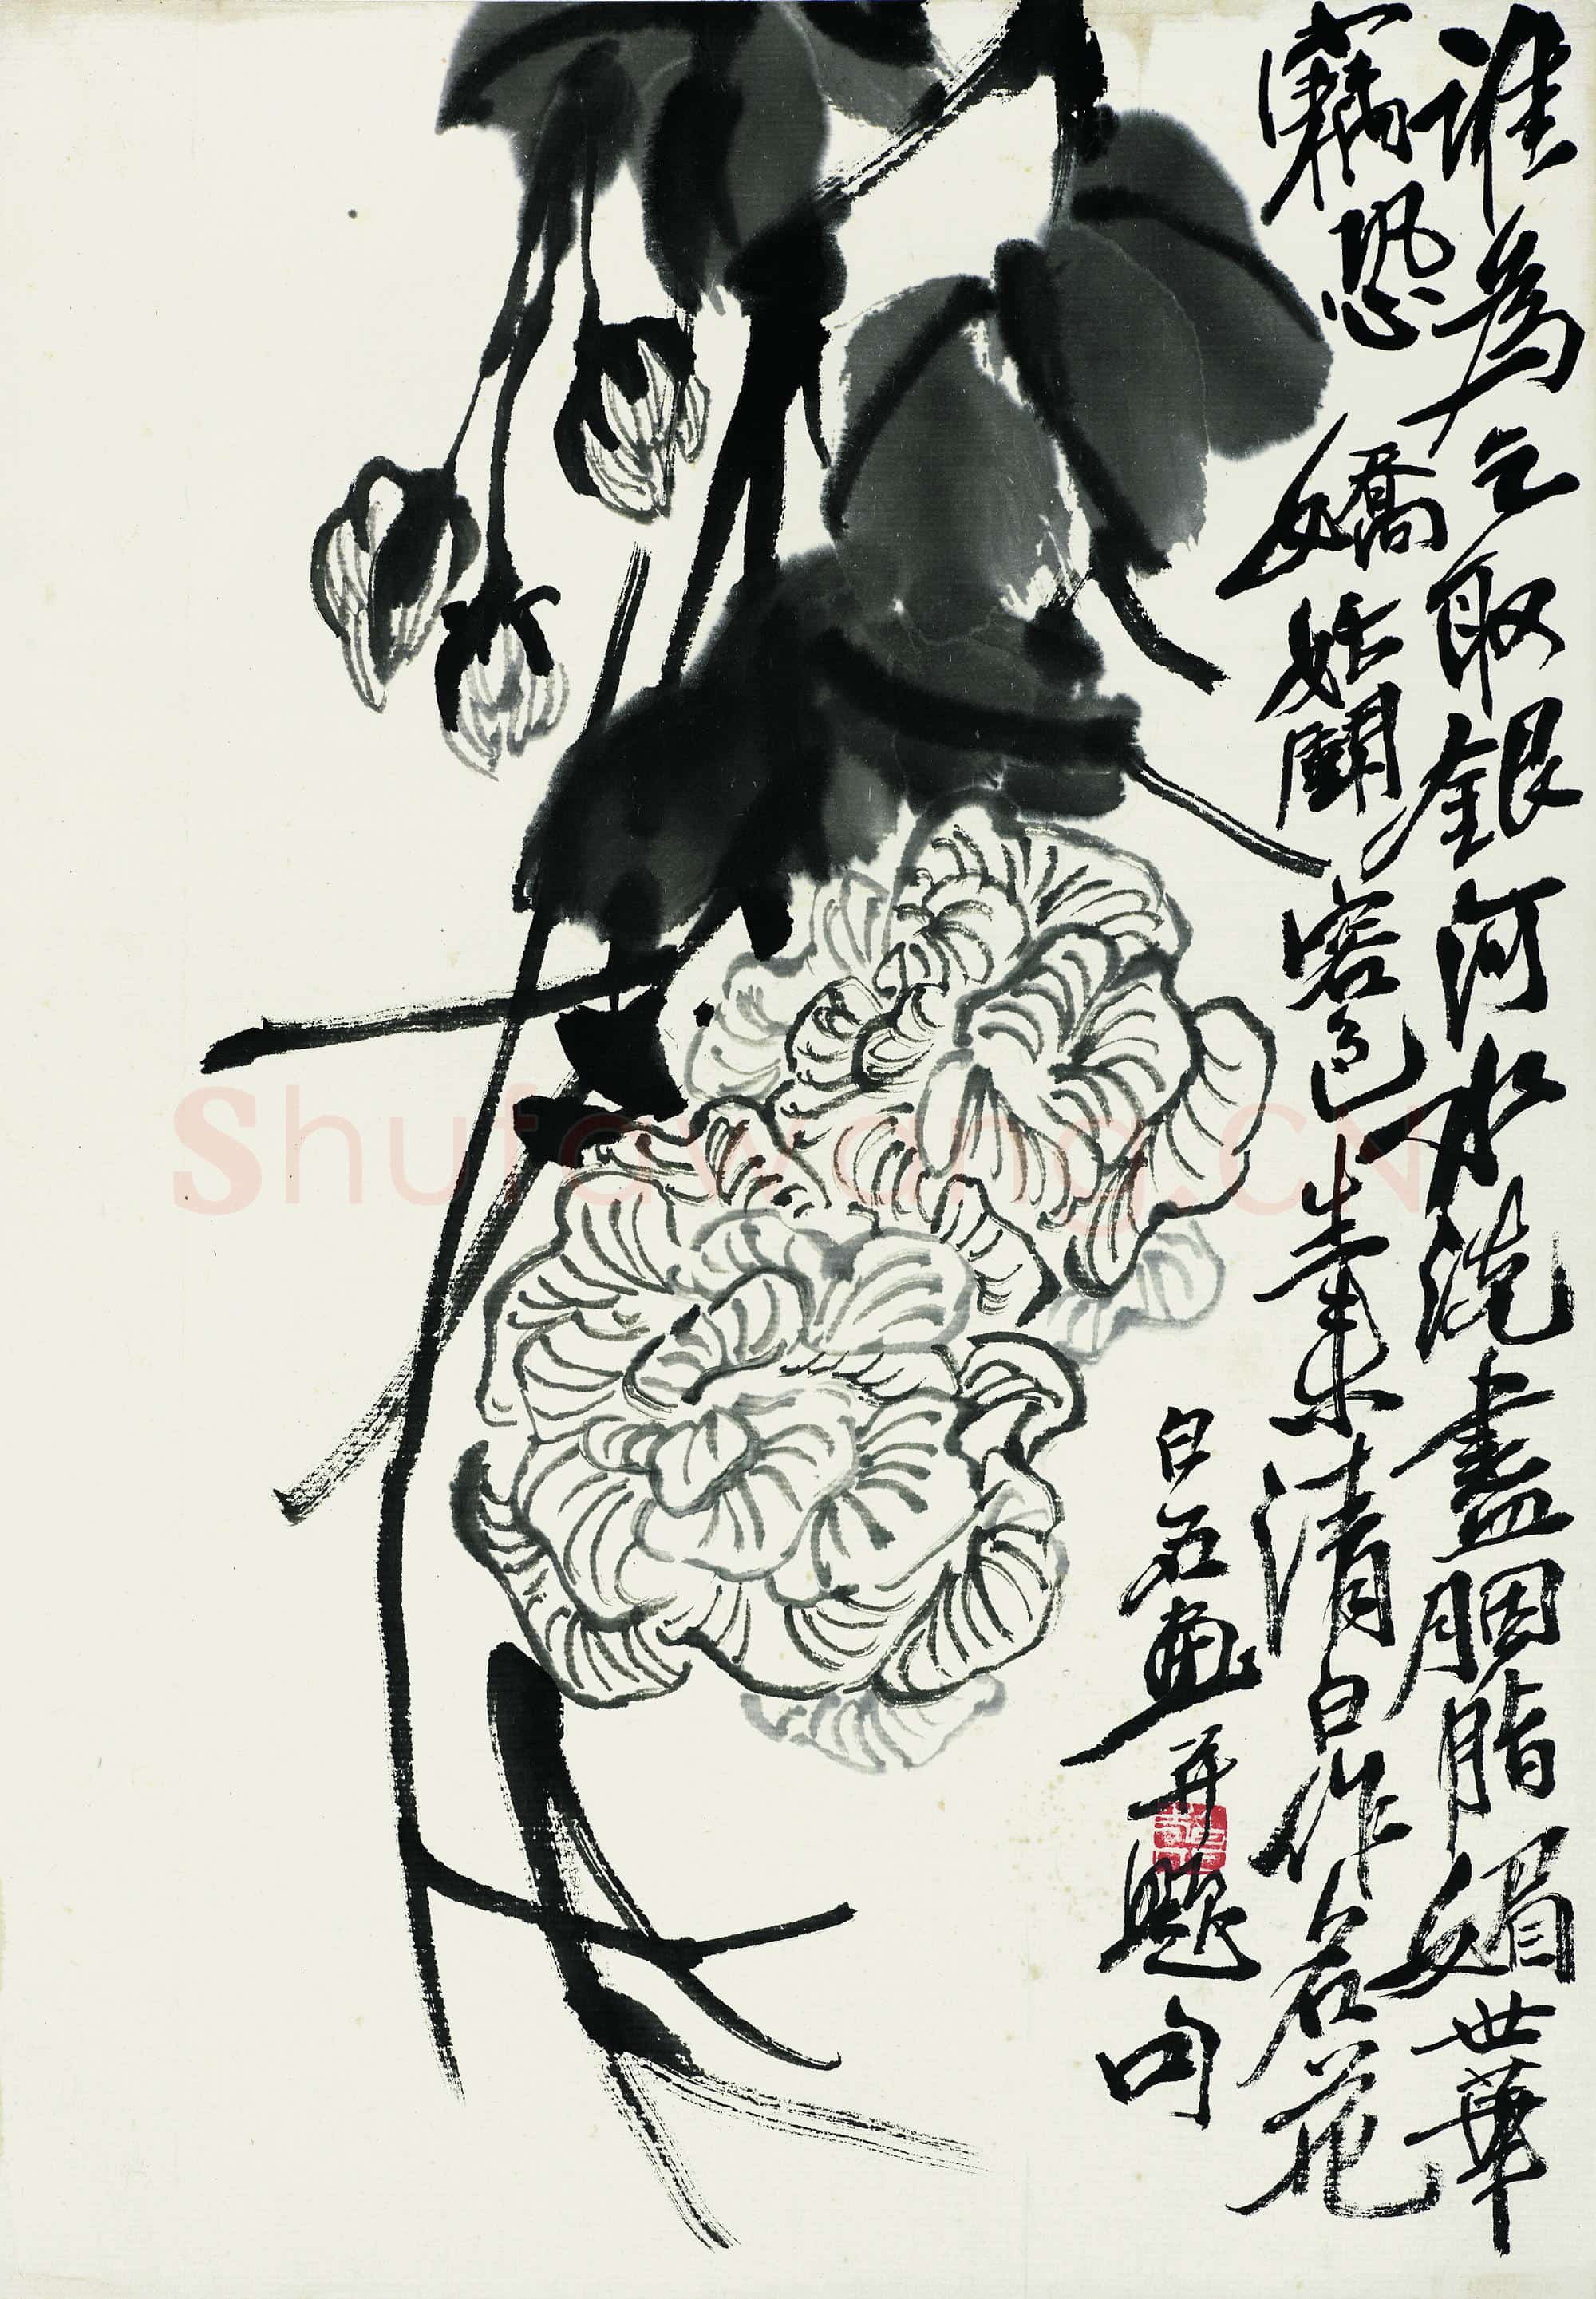 誰為乞取銀河水洗盡胭脂媚世華
竊恐嬌妬鬭容色豈素清白作名花
白石畫并題句
ShufaWang.CN